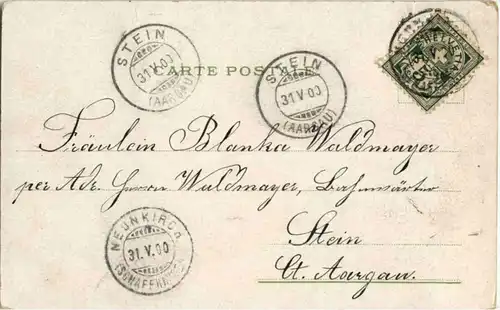 STEIN
31.V.00
(AARGAU)
CARTE POSTALE
STEIN
31.V.00
(AARGAU)
HELVETIA
Fräulein Blanka Waldmayer
per Adr. Herrn Waldmayer, Bahnwärter
Stein
Ct. Aargau.
NEUNKIRCH
31.V.00
(SCHAFFHAUSEN)